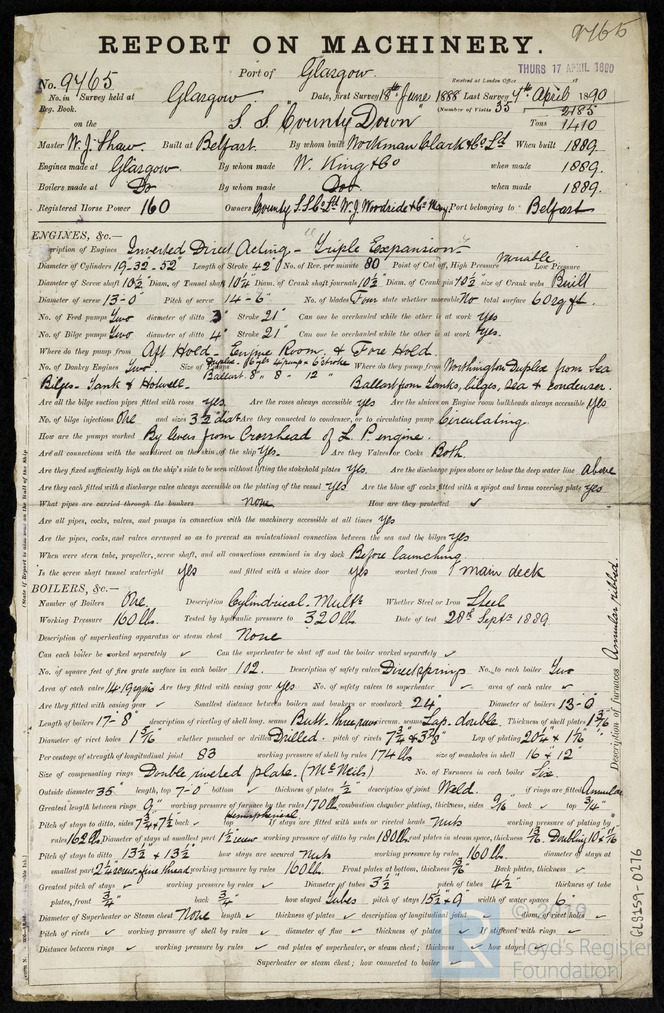 9765
REPORT ON MACHINERY.
Port of Glasgow
Received at London Office THURS 17 APRIL 1890
No. 9765
No. in Survey held at Glasgow Date, first Survey 18th June 1888 Last Survey 7th April 1890
Reg. Book. (Number of Visits 35
on the S. S. "County Down" Tons 2185 1410
Master W. J. Shaw. Built at Belfast. By whom built Workman Clark & Co Ld When built 1889.
Engines made at Glasgow By whom made W. King & Co when made 1889.
Boilers made at Do By whom made Do. when made 1889.
Registered Horse Power 160 Owners County S.S. Co Ld W. J. Woodside & Co Port belonging to Belfast
ENGINES, &c.—
Description of Engines Inverted Direct Acting - "Triple Expansion"
Diameter of Cylinders 19-32-52" Length of Stroke 42" No. of Rev. per minute 80 Point of Cut off, High Pressure variable Low Pressure
Diameter of Screw shaft 10½ Diam. of Tunnel shaft 10¼ Diam. of Crank shaft journals 10½ Diam. of Crank pin 10½ size of Crank webs Built
Diameter of screw 13-0" Pitch of screw 14-6" No. of blades Four state whether moveable No total surface 60 sq ft.
No. of Feed pumps Two diameter of ditto 3" Stroke 21" Can one be overhauled while the other is at work yes
No. of Bilge pumps Two diameter of ditto 4" Stroke 21" Can one be overhauled while the other is at work Yes.
Where do they pump from Aft Hold - Engine Room & Fore Hold.
No. of Donkey Engines Two. Size of Pumps Where do they pump from Worthington Duplex from Sea
Bilges - Tank & Hotwell. Ballast 8" 8" 12" Ballast from Tanks, bilges, Sea & condenser.
Are all the bilge suction pipes fitted with roses yes Are the roses always accessible yes Are the sluices on Engine room bulkheads always accessible yes
No. of bilge injections One and sizes 3½ diar Are they connected to condenser, or to circulating pump Circulating.
How are the pumps worked By levers from Crosshead of L P engine.
Are all connections with the sea direct on the skin of the ship Yes. Are they Valves or Cocks Both.
Are they fixed sufficiently high on the ship's side to be seen without lifting the stokehold plates yes. Are the discharge pipes above or below the deep water line above
Are they each fitted with a discharge valve always accessible on the plating of the vessel yes Are the blow off cocks fitted with a spigot and brass covering plate yes
What pipes are carried through the bunkers none How are they protected ✓
Are all pipes, cocks, valves, and pumps in connection with the machinery accessible at all times yes
Are the pipes, cocks, and valves arranged so as to prevent an unintentional connection between the sea and the bilges yes
When were stern tube, propeller, screw shaft, and all connections examined in dry dock Before launching.
Is the screw shaft tunnel watertight yes and fitted with a sluice door yes worked from main deck
BOILERS, &c.—
Number of Boilers One. Description Cylindrical. Multr Whether Steel or Iron Steel
Working Pressure 160 lb. Tested by hydraulic pressure to 320 lb. Date of test 28th Septr 1889.
Description of superheating apparatus or steam chest None
Can each boiler be worked separately ✓ Can the superheater be shut off and the boiler worked separately ✓
No. of square feet of fire grate surface in each boiler 102. Description of safety valves Direct spring No. to each boiler Two
Area of each valve 14.19 sq ins Are they fitted with easing gear yes No. of safety valves to superheater ✓ area of each valve ✓
Are they fitted with easing gear ✓ Smallest distance between boilers and bunkers or woodwork 24" Diameter of boilers 13-0"
Length of boilers 17-8" description of riveting of shell long. seams Butt. three rows circum. seams Lap. double. Thickness of shell plates 1 3/16
Diameter of rivet holes 1 3/16 whether punched or drilled Drilled. pitch of rivets Lap of plating
Per centage of strength of longitudinal joint 83 working pressure of shell by rules 174 lb size of manholes in shell 16 x 12"
Size of compensating rings Double riveted plate. (McNeils) No. of Furnaces in each boiler Six.
Outside diameter 35" length, top 7-0" bottom ✓ thickness of plates ½" description of joint Weld. if rings are fitted Annular
Greatest length between rings 9" working pressure of furnace by the rules 170 lb combustion chamber plating, thickness, sides 9/16 back ✓ top ¾"
Pitch of stays to ditto, sides 7¾ x 7½ back ✓ top Hemispherical If stays are fitted with nuts or riveted heads nuts working pressure of plating by
rules 162 lb Diameter of stays at smallest part 1½ screw working pressure of ditto by rules 180 lb end plates in steam space, thickness Doubling
Pitch of stays to ditto 13½ x 13½ how stays are secured nuts working pressure by rules 160 lb. diameter of stays at
smallest part 2¼ screw - fine thread working pressure by rules 160 lb Front plates at bottom, thickness 13/16 Back plates, thickness ✓
Greatest pitch of stays ✓ working pressure by rules ✓ Diameter of tubes 3½" pitch of tubes 4½" thickness of tube
plates, front ¾" back ¾" how stayed Tubes pitch of stays 15½ x 9" width of water spaces 6"
Diameter of Superheater or Steam chest None length ✓ thickness of plates ✓ description of longitudinal joint ✓ diam. of rivet holes ✓
Pitch of rivets ✓ working pressure of shell by rules ✓ diameter of flue ✓ thickness of plates ✓ If stiffened with rings ✓
Distance between rings ✓ working pressure by rules ✓ end plates of superheater, or steam chest; thickness ✓ how stayed ✓
Superheater or steam chest; how connected to boiler ✓
Description of Furnaces Annular ribbed.
GLS159-0276
© 2019
Lloyd's Register
Foundation